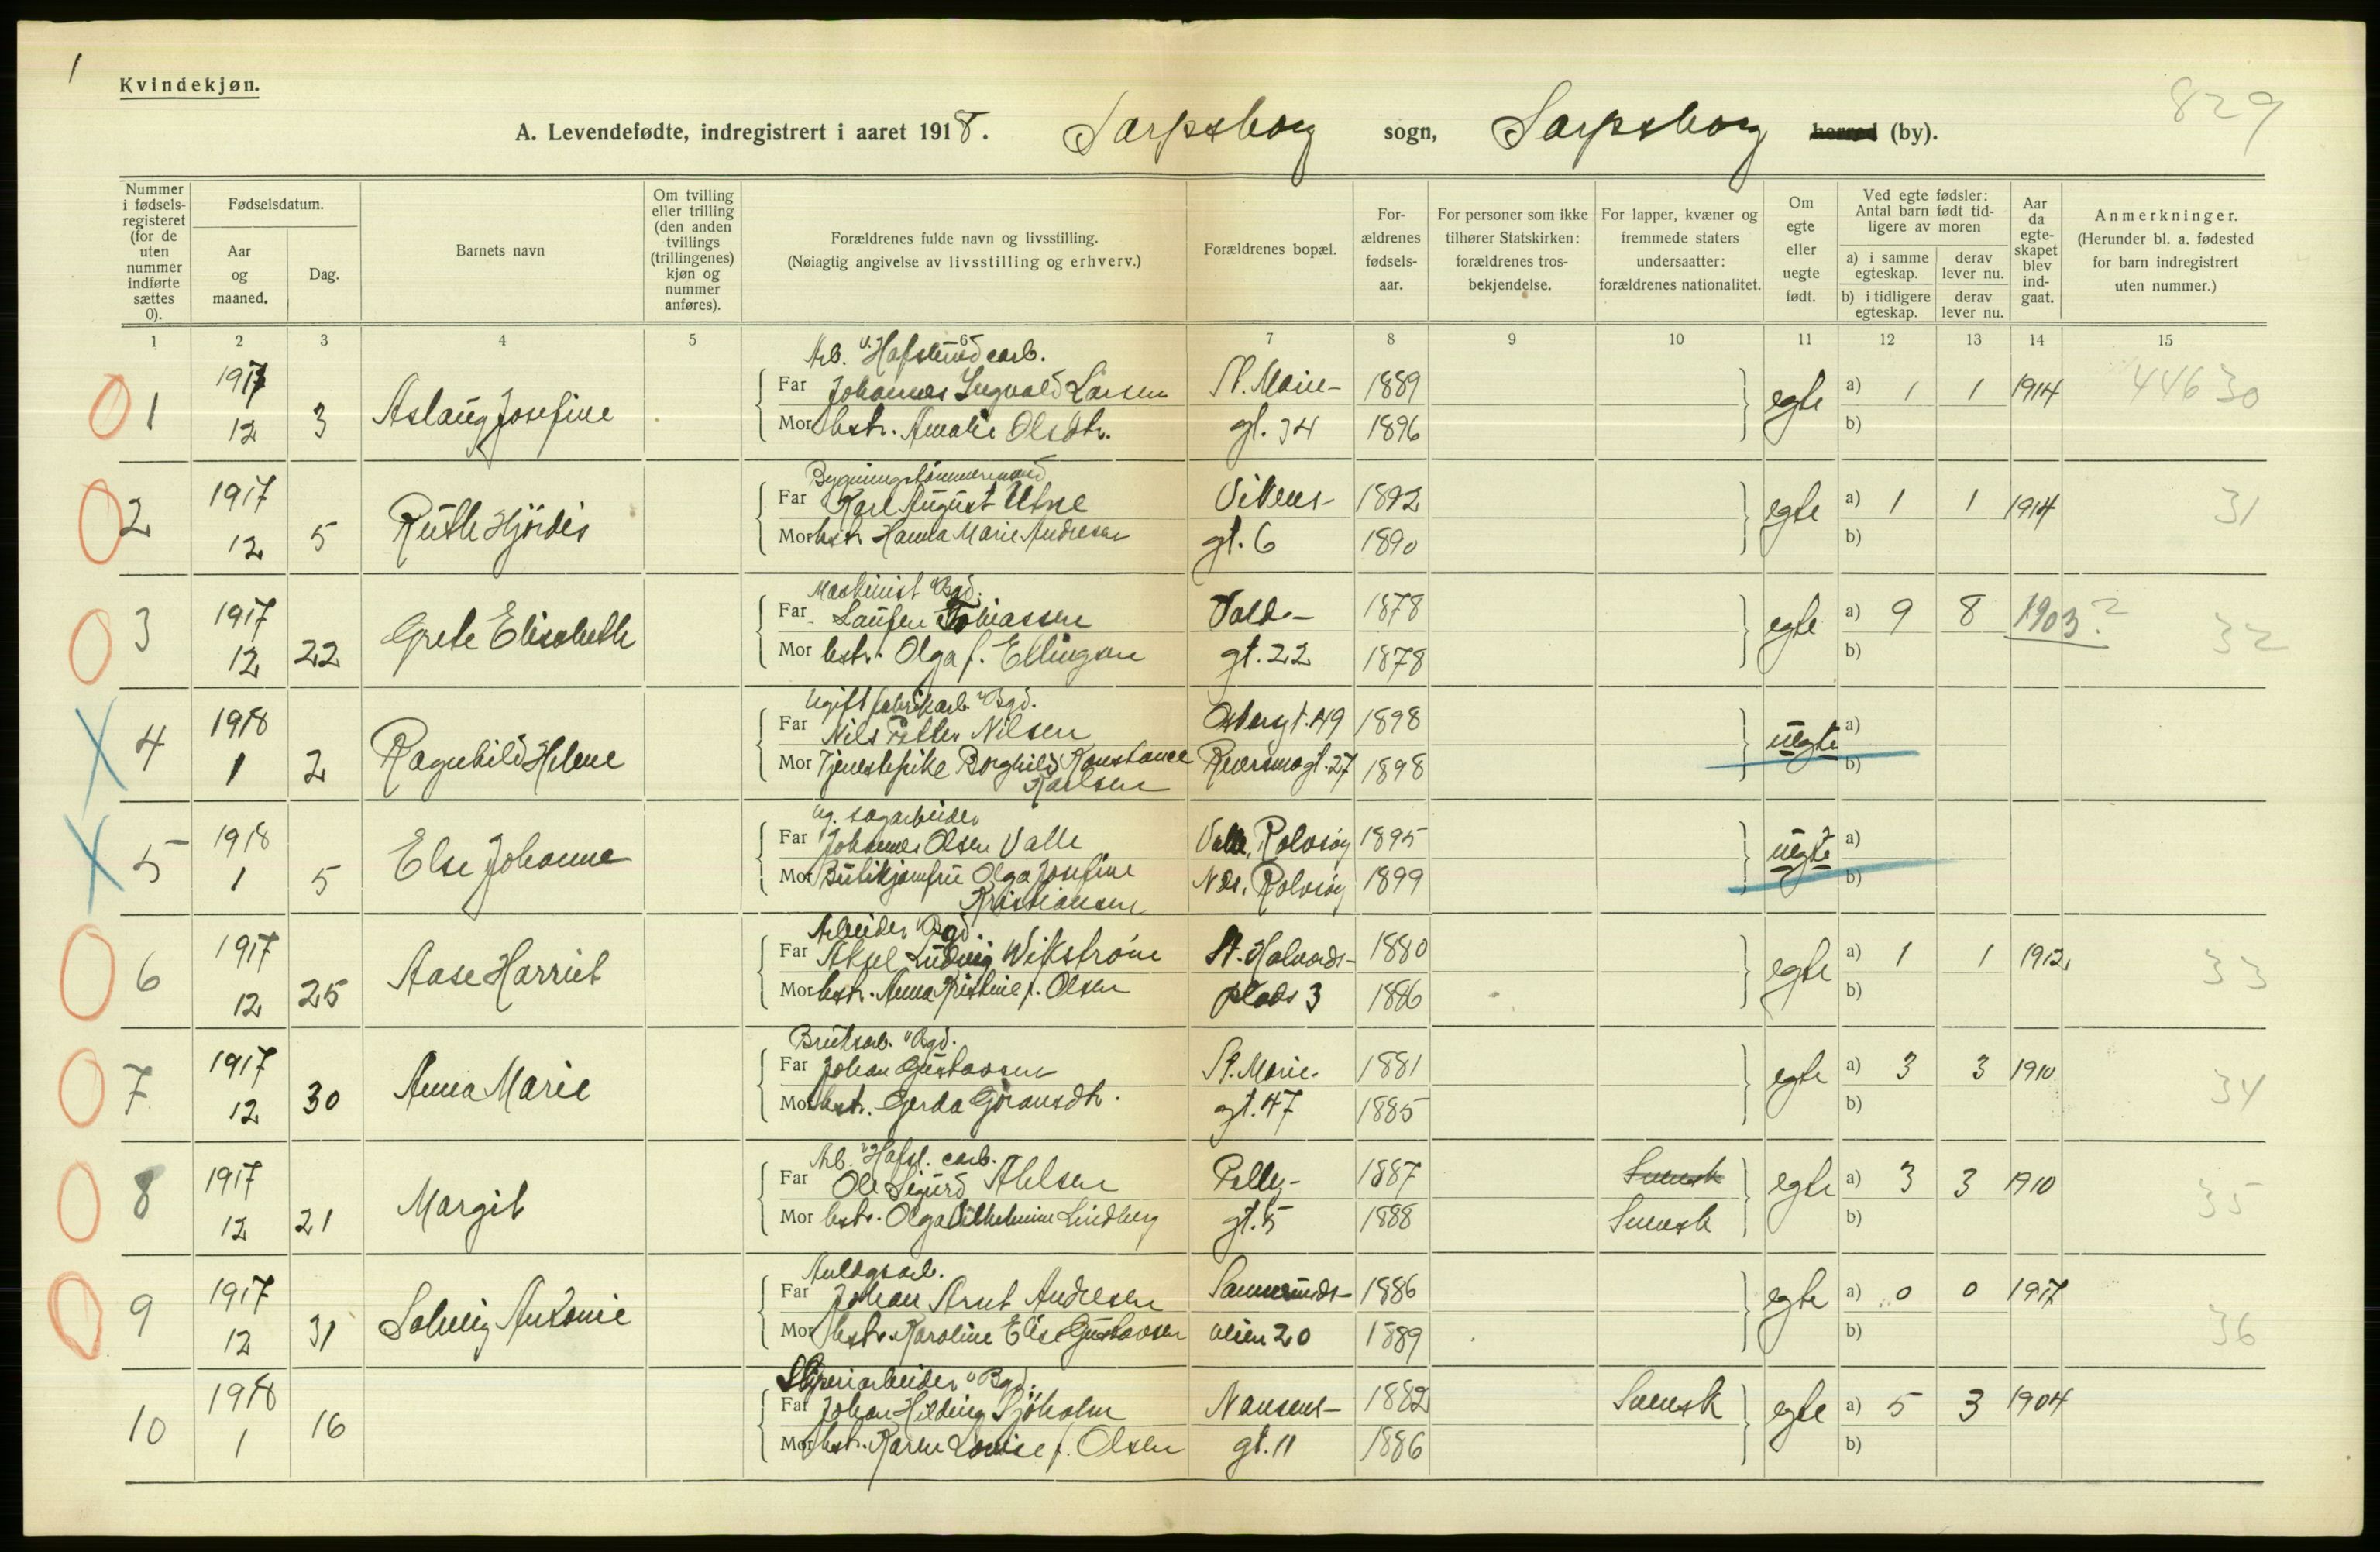 1
Kvindekjøn.
829
A. Levendefødte, indregistrert i aaret 1918. Sarpsborg sogn, Sarpsborg herred (by).
Nummer i fødselsregisteret (for de uten nummer indførte sættes 0).
Fødselsdatum.
Aar og maaned.
Dag.
Barnets navn
Om tvilling eller trilling (den anden tvillings (trillingenes) kjøn og nummer anføres).
Forældrenes fulde navn og livsstilling.
(Nøiagtig angivelse av livsstilling og erhverv.)
Forældrenes bopæl.
Forældrenes fødselsaar.
For personer som ikke tilhører Statskirken: forældrenes trosbekjendelse.
For lapper, kvæner og fremmede staters undersaatter: forældrenes nationalitet.
Om egte eller uegte født.
Ved egte fødsler: Antal barn født tidligere av moren
a) i samme egteskap. derav lever nu.
b) i tidligere egteskap. derav lever nu.
Aar da egteskapet blev indgaat.
Anmerkninger.
(Herunder bl. a. fødested for barn indregistrert uten nummer.)
1 2 3 4 5 6 7 8 9 10 11 12 13 14 15
Arb. v. Hafslund carb.
1 1917 3 Aslaug Josefine Far Johannes Ingvald Larsen St. Marie- 1889 egte a) 1 1 1914 44630
12 Mor hstr. Amalie Olsdtr. gt. 34 1896 b)
Bygningstømmermand
2 1917 5 Ruth Hjördis Far Karl August Utne Vikens- 1892 egte a) 1 1 1914 31
12 Mor hstr. Hanna Marie Andresen gt. 6 1890 b)
Maskinist v. Bgd.
3 1917 22 Grete Elisabeth Far Laufen Tobiassen Vold- 1878 egte a) 9 8 1903? 32
12 Mor hstr. Olga f. Ellingsen gt. 22 1878 b)
Ugift fabrikarb. v. Bgd.
4 1918 2 Ragnhild Helene Far Nils Petter Nilsen 1898 uegte a)
1 Mor Tjenestepike Borghild Konstance Karlsen 1898 b)
ug. sagarbeider
5 1918 5 Else Johanne Far Johannes Olsen Valle Valle, Rolvsøy 1895 uegte a)
1 Mor Butikjomfru Olga Josefine Kristiansen Nes, Rolvsøy 1899 b)
Arbeider v. Bgd.
6 1917 25 Aase Harriet Far Aksel Ludvig Wikström St. Halvards- 1880 egte a) 1 1 1912 33
12 Mor hstr. Anna Kristine f. Olsen plads 3 1886 b)
Brutsarb. v. Bgd.
7 1917 30 Anna Marie Far Johan Gustavsen St. Marie- 1881 egte a) 3 3 1910 34
12 Mor hstr. Gerda Göransdtr. gt. 47 1885 b)
Arb. v. Hafsl. carb.
8 1917 21 Margit Far Ole Sigurd Ahlsen Pelly- 1887 Svensk egte a) 3 3 1910 35
12 Mor hstr. Olga Vilhelmine Lindberg gt. 5 1888 Svensk b)
Anlægsarb.
9 1917 31 Solveig Antonie Far Johan Arnt Andresen Sannesunds- 1886 egte a) 0 0 1917 36
12 Mor hstr. Karoline Elise Gustavsen veien 20 1889 b)
Sliperiarbeider v. Bgd.
10 1918 16 Far Johan Hilding Sjöholm Nansens- 1882 Svensk egte a) 5 3 1904
1 Mor hstr. Karen Lovise f. Olsen gt. 11 1886 b)